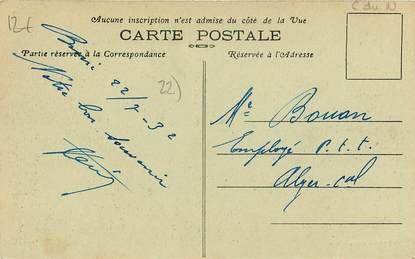 12€
C du N
Aucune inscription n'est admise du côté de la Vue
CARTE POSTALE
Partie réservée à la Correspondance
Réservée à l'Adresse
22/7-32
22)
Notre bon souvenir
Me Bouan
Employé P.T.T.
Alger-cal